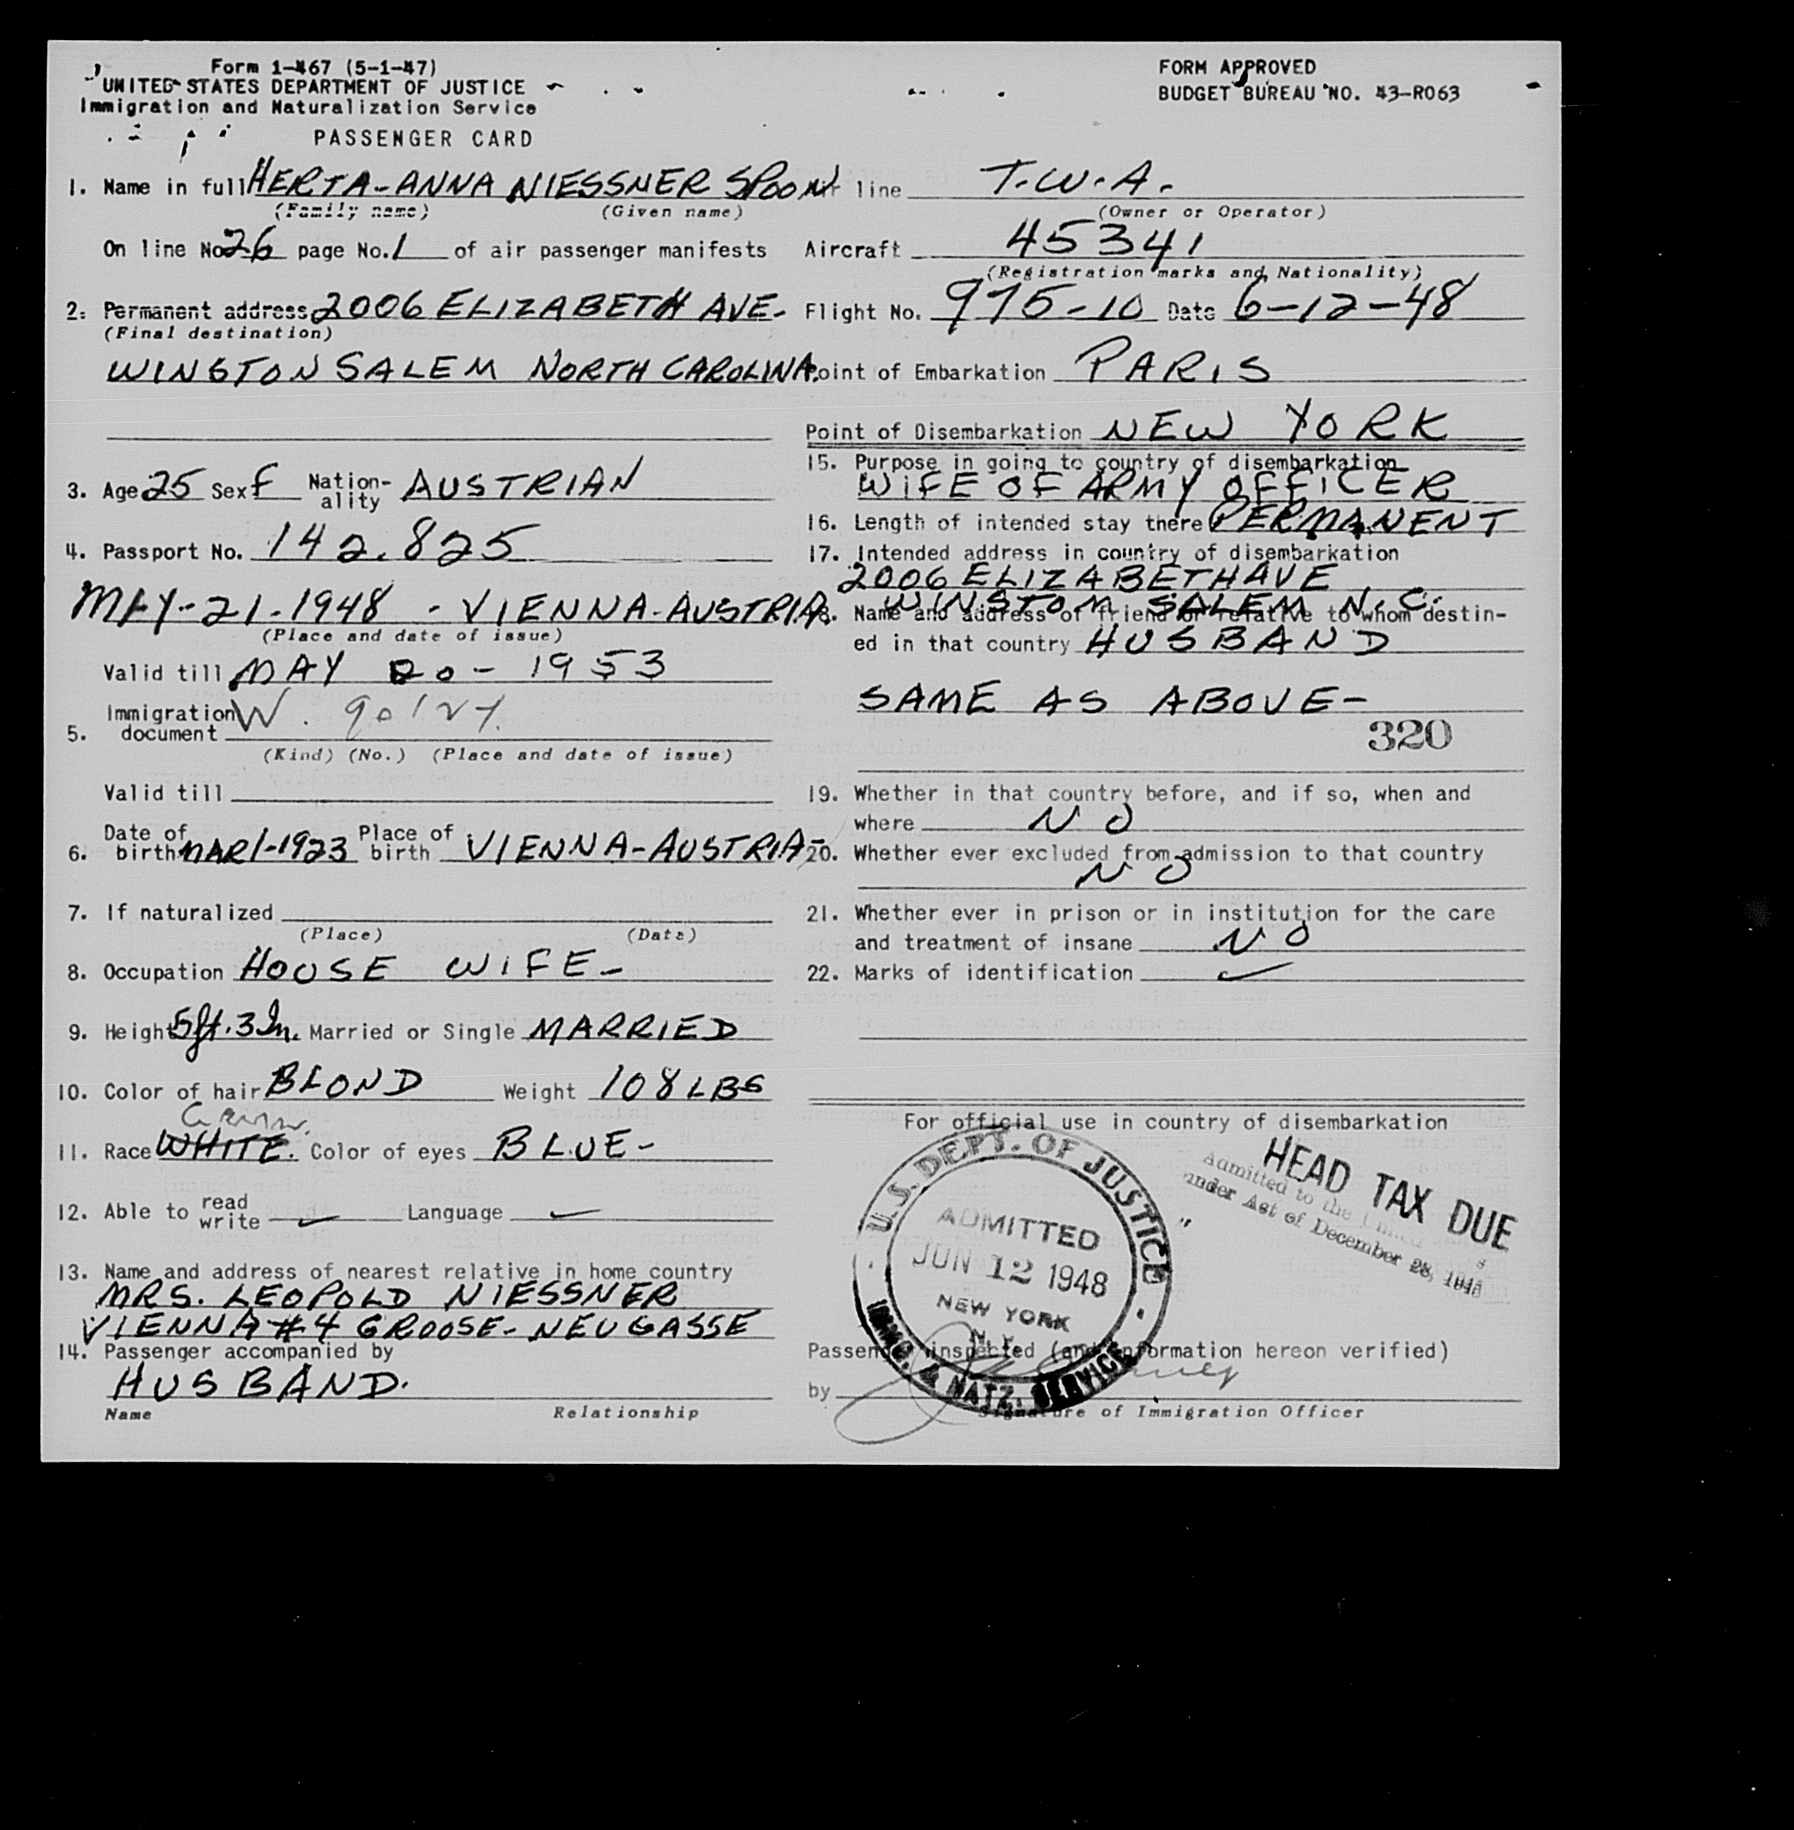 Form 1-467 (5-1-47)
UNITED STATES DEPARTMENT OF JUSTICE
Immigration and Naturalization Service
PASSENGER CARD
FORM APPROVED
BUDGET BUREAU NO. 43-R063
1. Name in full HERTA-ANNA NIESSNER SPOON
(Family name) (Given name)
On line No. 26 page No. 1 of air passenger manifests
2. Permanent address 2006 ELIZABETH AVE-
(Final destination)
WINSTON SALEM NORTH CAROLINA.
3. Age 25 Sex F Nation-ality AUSTRIAN
4. Passport No. 142.825
MAY-21-1948 - VIENNA-AUSTRIA.
(Place and date of issue)
Valid till MAY 20- 1953
5. Immigration document W.
(Kind) (No.) (Place and date of issue)
Valid till
6. Date of birth MAR 1-1923 Place of birth VIENNA-AUSTRIA-
7. If naturalized
(Place) (Date)
8. Occupation HOUSE WIFE-
9. Height 5ft. 3 In. Married or Single MARRIED
10. Color of hair BLOND Weight 108 LBS
Germ.
11. Race WHITE. Color of eyes BLUE-
12. Able to read write ✓ Language ✓
13. Name and address of nearest relative in home country
MRS. LEOPOLD NIESSNER
VIENNA #4 GROOSE-NEUGASSE
14. Passenger accompanied by
HUSBAND.
Name Relationship
Air line T.W.A.
(Owner or Operator)
Aircraft 45341
(Registration marks and Nationality)
Flight No. 975-10 Date 6-12-48
Point of Embarkation PARIS
Point of Disembarkation NEW YORK
15. Purpose in going to country of disembarkation
WIFE OF ARMY OFFICER
16. Length of intended stay there PERMANENT
17. Intended address in country of disembarkation
2006 ELIZABETH AVE
WINSTOM SALEM N.C.
18. Name and address of friend or relative to whom destin-
ed in that country HUSBAND
SAME AS ABOVE-
320
19. Whether in that country before, and if so, when and
where NO
20. Whether ever excluded from admission to that country
NO
21. Whether ever in prison or in institution for the care
and treatment of insane NO
22. Marks of identification ✓
For official use in country of disembarkation
U.S. DEPT. OF JUSTICE
ADMITTED
JUN 12 1948
NEW YORK
N.Y.
IMMG. & NATZ. SERVICE
HEAD TAX DUE
Admitted to the United
under Act of December 28, 1945
Passenger inspected (and information hereon verified)
by
Signature of Immigration Officer